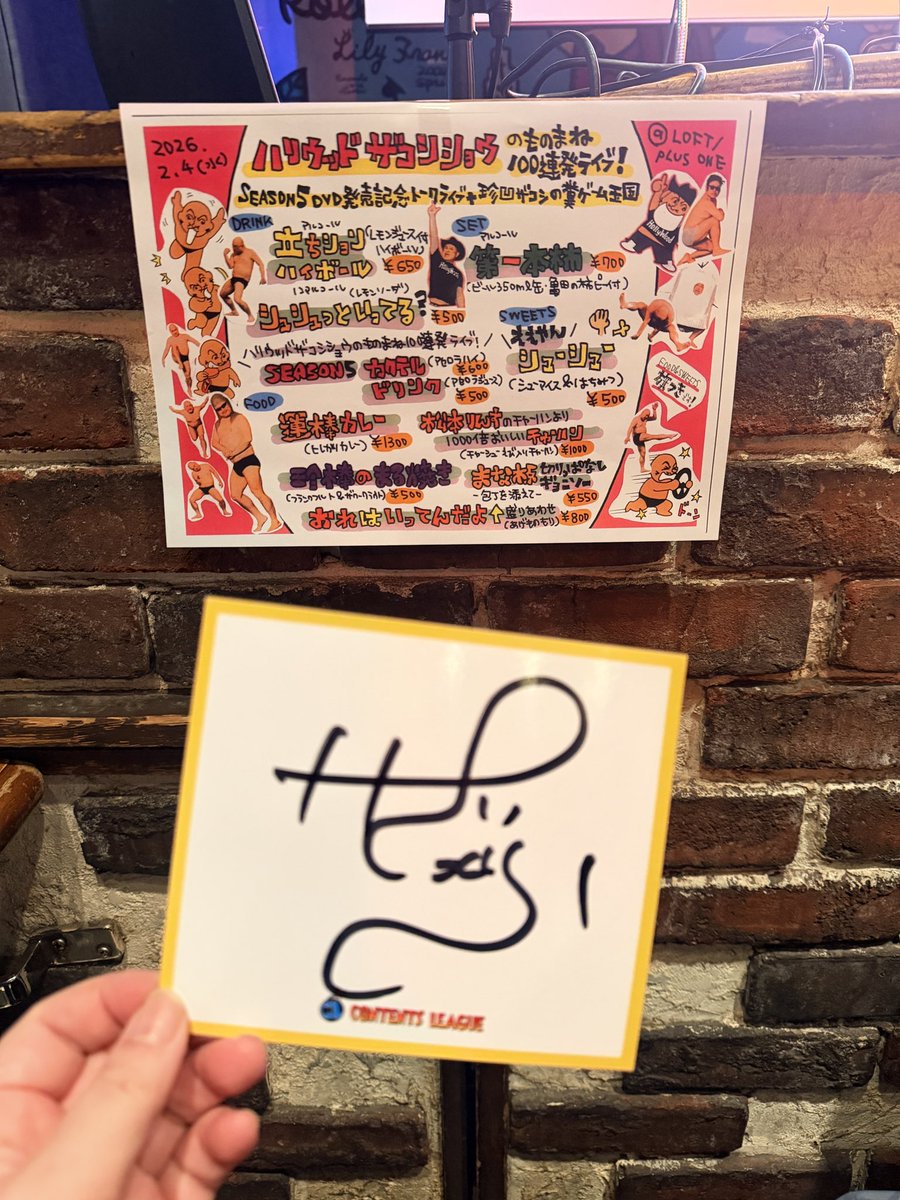 Lily Fran
2026.
2.4(水)
ハリウッドザコシショウのものまね
100連発ライブ!
@LOFT/
PLUS ONE
SEASON5 DVD発売記念トークライブ+珍凹ザコシの糞ゲーム王国
DRINK
アルコール
立ちション
ハイボール
(レモンジュース付
ハイボール)
¥650
ノンアルコール
(レモンソーダ)
シュシュっといってる?
¥500
SET
アルコール
第一本柿
¥700
(ビール350ml缶・亀田の柿ピー付)
ハリウッドザコシショウのものまね100連発ライブ!
SEASON5 カクテル
ドリンク
¥600
¥500
SWEETS
シューシュー
(シューアイス&はちみつ)
¥500
FOOD
運棒カレー
(ひじかりカレー)
¥1300
1000倍おいしいチャーハン
¥1000
(フランクフルト&ガーリックライト)
¥500
切りっぱなし
ギョニソー
-包丁を添えて-
¥550
おれはいってんだよ↑盛りあわせ
(あげものもり)
¥800
FOOD&SWEETS
旗つき!!
ドーン
CONTENTS LEAGUE